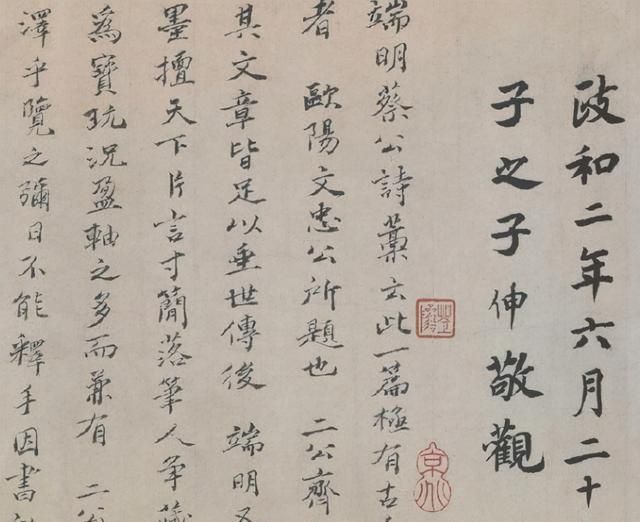 政和二年六月二十
子之子伸敬觀
端明蔡公詩藁云此一篇極有古
者 歐陽文忠公所題也 二公齊
其文章皆足以垂世傳後 端明又
墨擅天下片言寸簡落筆人爭藏
為寶玩況盈軸之多而兼有 二公
澤乎覽之彌日不能釋手因書